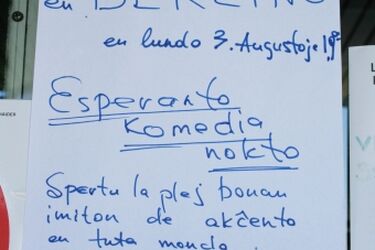 en BERLINO
en lundo 3. Augusto je 19³⁰
Esperanto
Komedia
nokto
Spertu la plej bonan
imiton de akĉento
en tuta mondo